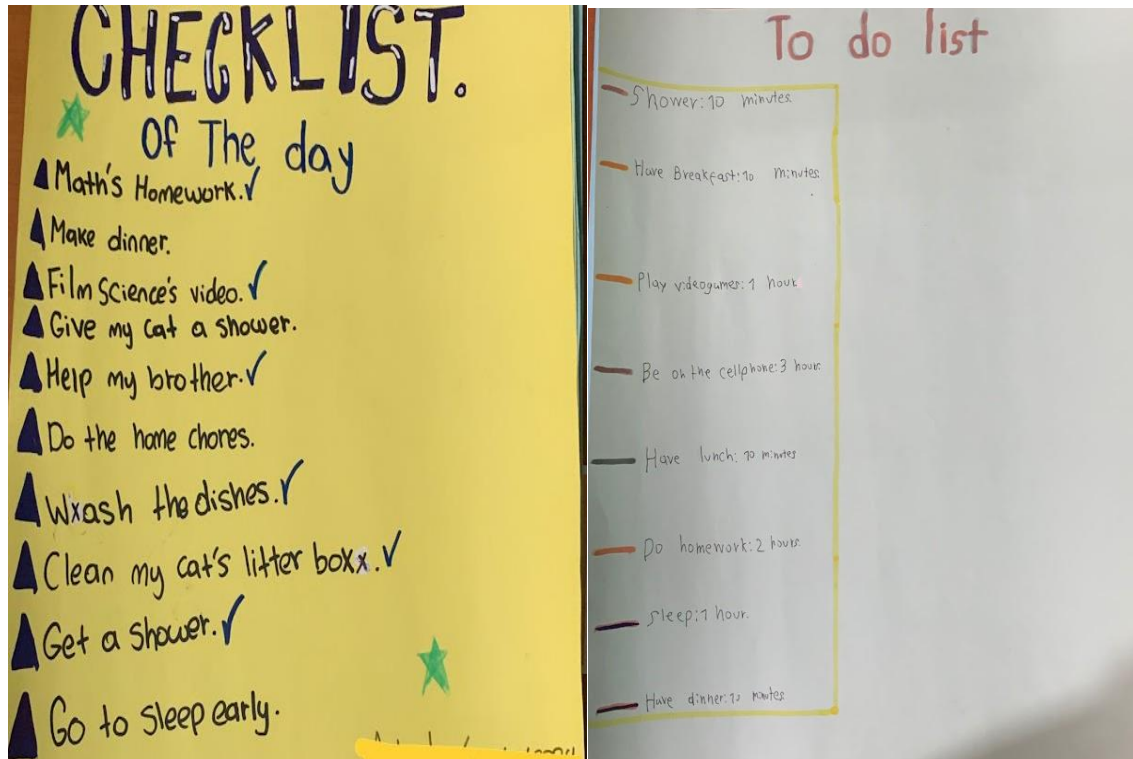 CHECKLIST.
Of The day
Math's Homework. ✓
Make dinner.
Film Science's video. ✓
Give my cat a shower.
Help my brother. ✓
Do the home chores.
Wxash the dishes. ✓
Clean my cat's litter boxx. ✓
Get a shower. ✓
Go to sleep early.
To do list
Shower: 10 minutes
Have Breakfast: 10 minutes
Play videogames: 1 hour
Be on the cellphone: 3 hours
Have lunch: 10 minutes
Do homework: 2 hours
Sleep: 1 hour.
Have dinner: 10 minutes